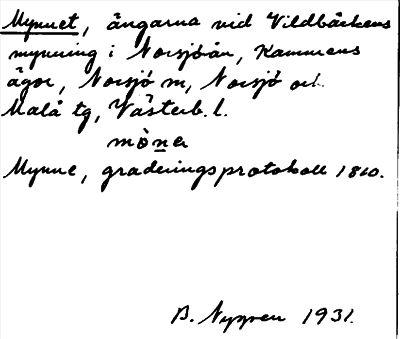 Mynnet, ängarna vid Vildbäckens
mynning i Norsjöån, Kammens
ägor, Norsjö m, Norsjö och
Malå tg, Västerb. l.
mònen
Mynne, graderingsprotokoll 1810.
B. Nyppen 1931.